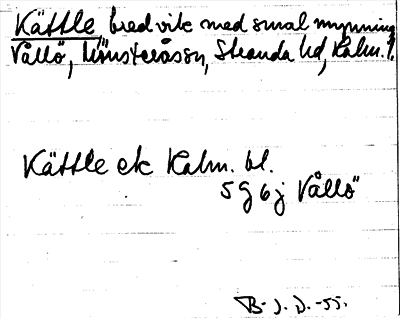 Kättle, bred vik med smal mynning
Vållö, Mönsterås sn, Stranda hd, Kalm. l.
Kättle ek Kalm. bl.
5 G 6 j Vållö
B. J. D. -55.